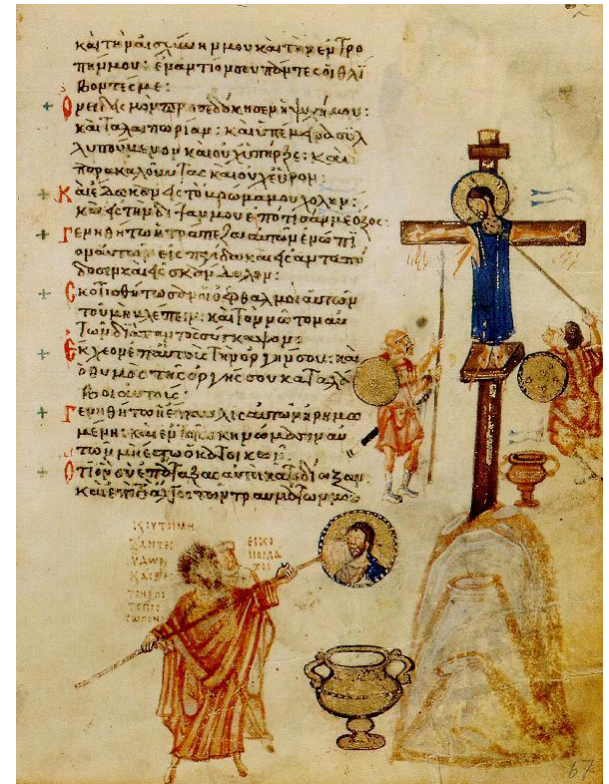 καὶ τὴν αἰσχύνην μου καὶ τὴν ἐντρο
πήν μου· ἐναντίον σου πάντες οἱ θλί
βοντές με·
προσεδόκησεν ἡ ψυχή μου·
καὶ ταλαιπωρίαν· καὶ ὑπέμεινα συλ
λυπούμενον καὶ οὐχ ὑπῆρξε· καὶ
παρακαλοῦντας καὶ οὐχ εὗρον·
Καὶ ἔδωκαν εἰς τὸ βρῶμά μου χολήν·
καὶ εἰς τὴν δίψαν μου ἐπότισάν με ὄξος
Γενηθήτω ἡ τράπεζα αὐτῶν ἐνώπι
ον αὐτῶν εἰς παγίδα καὶ εἰς ἀνταπό
δοσιν καὶ εἰς σκάνδαλον·
Σκοτισθήτωσαν οἱ ὀφθαλμοὶ αὐτῶν
τοῦ μὴ βλέπειν· καὶ τὸν νῶτον αὐ
τῶν διὰ παντὸς σύγκαμψον·
Ἔκχεον ἐπ' αὐτοὺς τὴν ὀργήν σου· καὶ
ὁ θυμὸς τῆς ὀργῆς σου καταλά
βοι αὐτούς·
Γενηθήτω ἡ ἔπαυλις αὐτῶν ἠρημω
μένη· καὶ ἐν τοῖς σκηνώμασιν αὐ
τῶν μὴ ἔστω ὁ κατοικῶν·
Ὅτι ὃν σὺ ἐπάταξας αὐτοὶ κατεδίωξαν
καὶ ἐπὶ τὸ ἄλγος τῶν τραυμάτων μου
ΥΔΩΡ
67